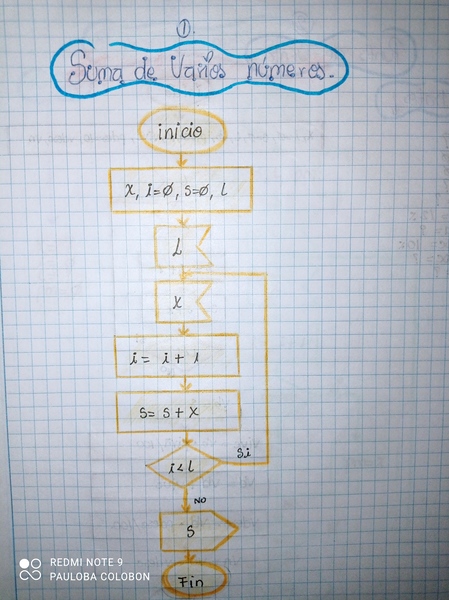 ①.
Suma de Varios números.
inicio
X, i=Ø, s=Ø, l
L
X
i= i + 1
s= s + x
i<l
Si
NO
S
Fin
REDMI NOTE 9
PAULOBA COLOBON